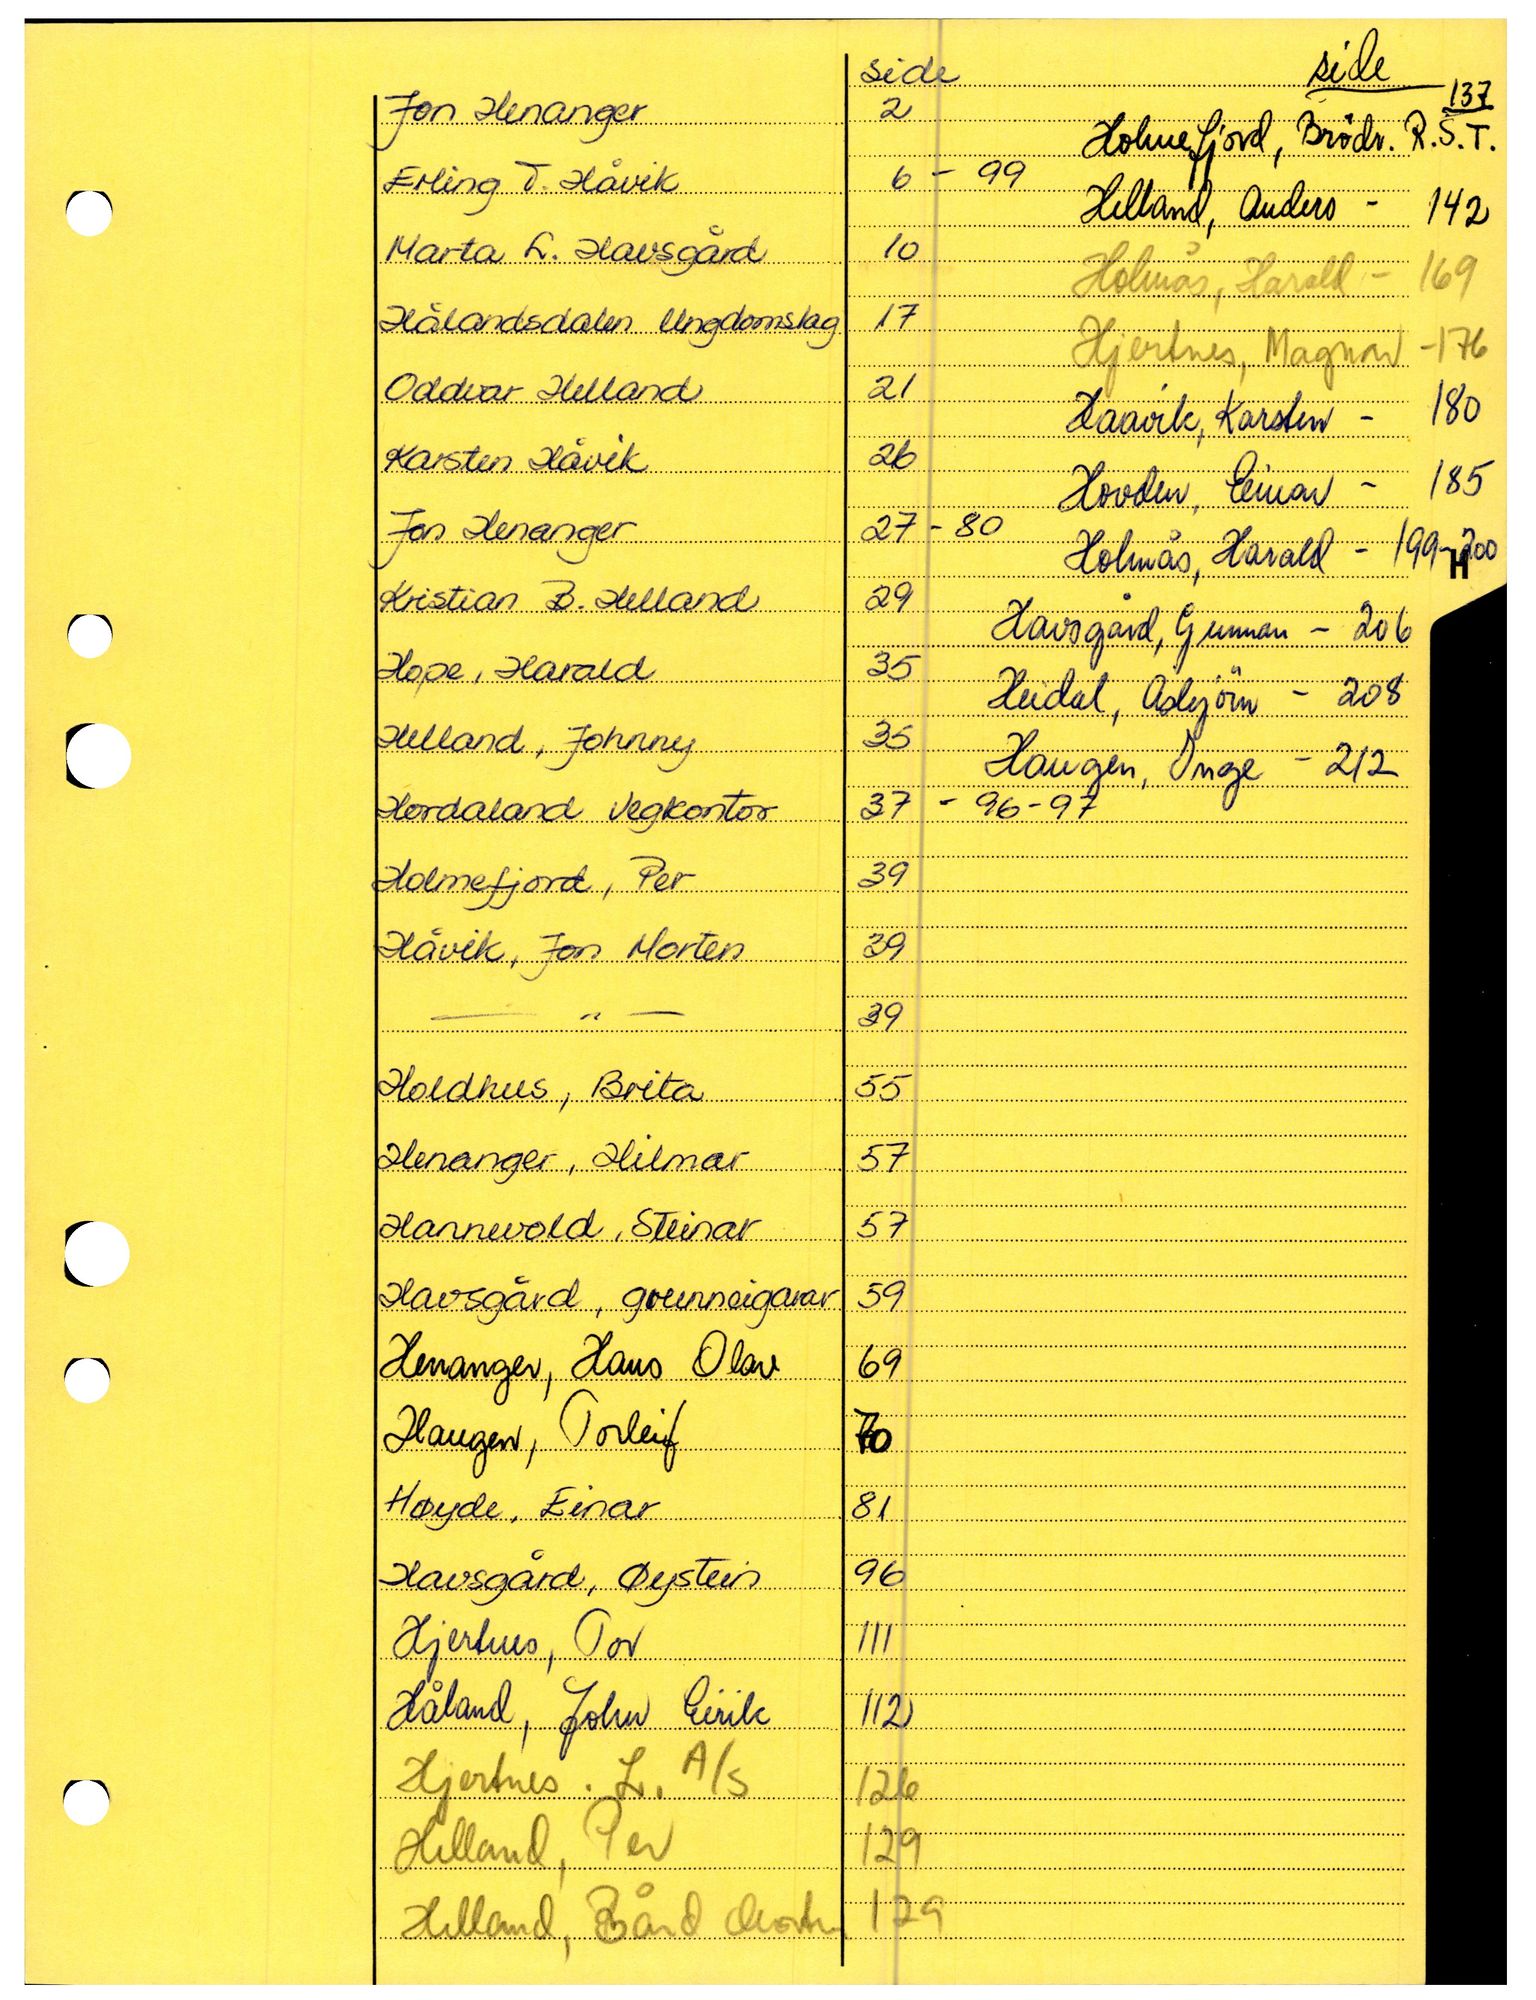 side
Jon Henanger 2
Erling T. Håvik 6 - 99
Marta L. Havsgård 10
Hålandsdalen Ungdomslag 17
Oddvar Helland 21
Karsten Håvik 26
Jon Henanger 27 - 80
Kristian B. Helland 29
Hope, Harald 35
Helland, Johnny 35
Hordaland Vegkontor 37 - 96-97
Holmefjord, Per 39
Håvik, Jon Morten 39
— " — 39
Holdhus, Brita 55
Henanger, Hilmar 57
Hannevold, Steinar 57
Havsgård, grunneigarar 59
Henanger, Hans Olav 69
Haugen, Torleif 70
Høyde, Einar 81
Havsgård, Øystein 96
Hjertnes, Tor 111
Håland, John Eirik 112
Hjertnes. L. A/S 126
Helland, Per 129
Helland, Bård Morten 129
side
137
Holmefjord, Brödr. R.S.T.
Helland, Anders - 142
Holmås, Harald - 169
Hjertnes, Magnar - 176
Haavik, Karsten - 180
Hovden, Einar - 185
Holmås, Harald - 199-200
H
Havsgård, Gunnar - 206
Heidal, Asbjörn - 208
Haugen, Inge - 212